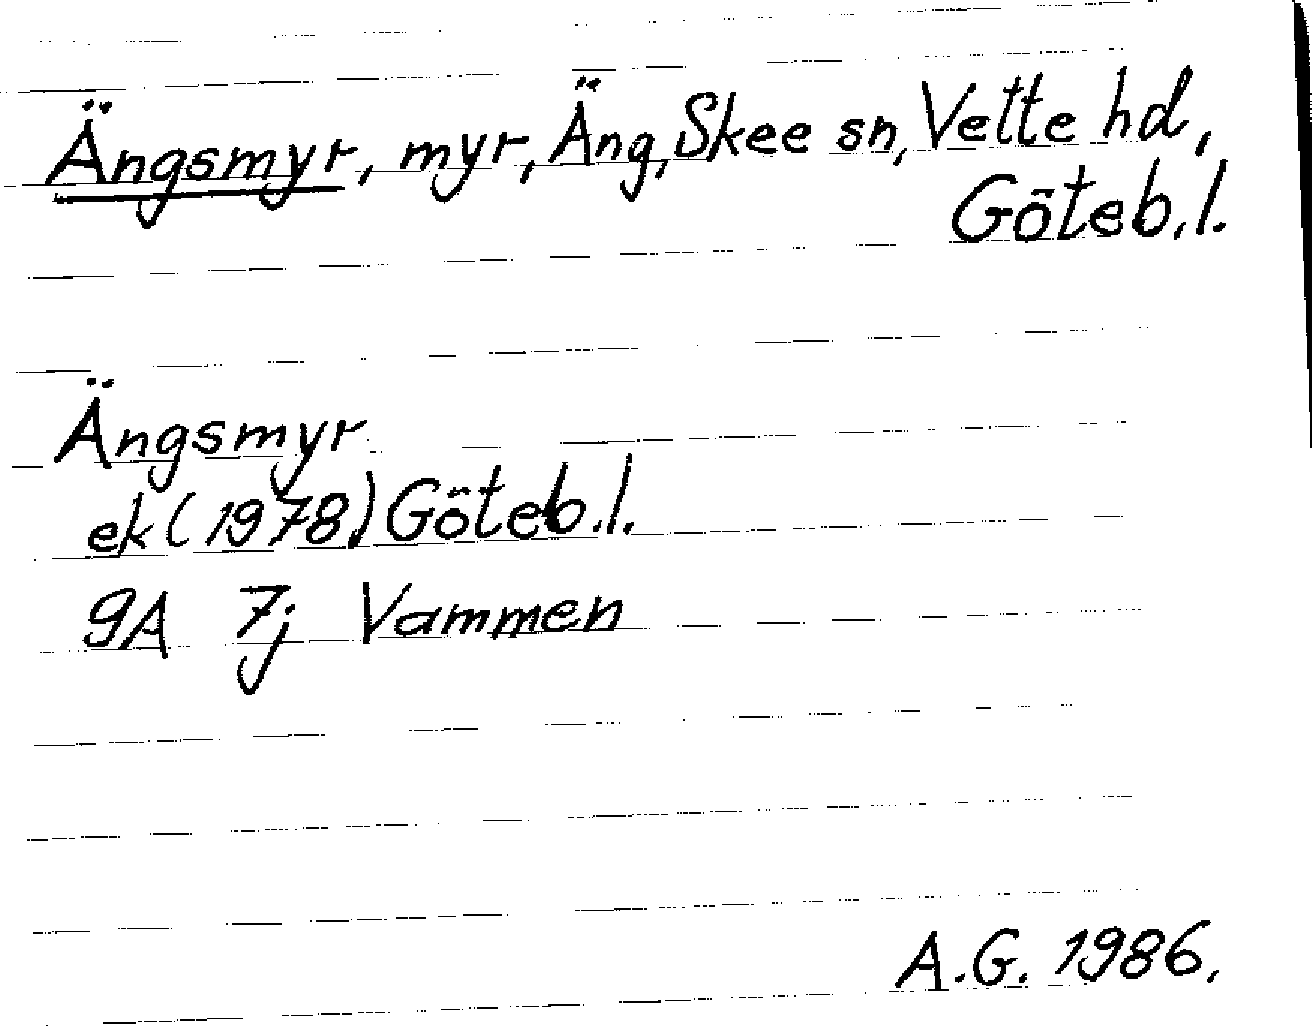 Ängsmyr, myr, Äng, Skee sn, Vette hd,
Göteb.l.
Ängsmyr
ek (1978) Göteb.l.
9A 7j Vammen
A.G. 1986.